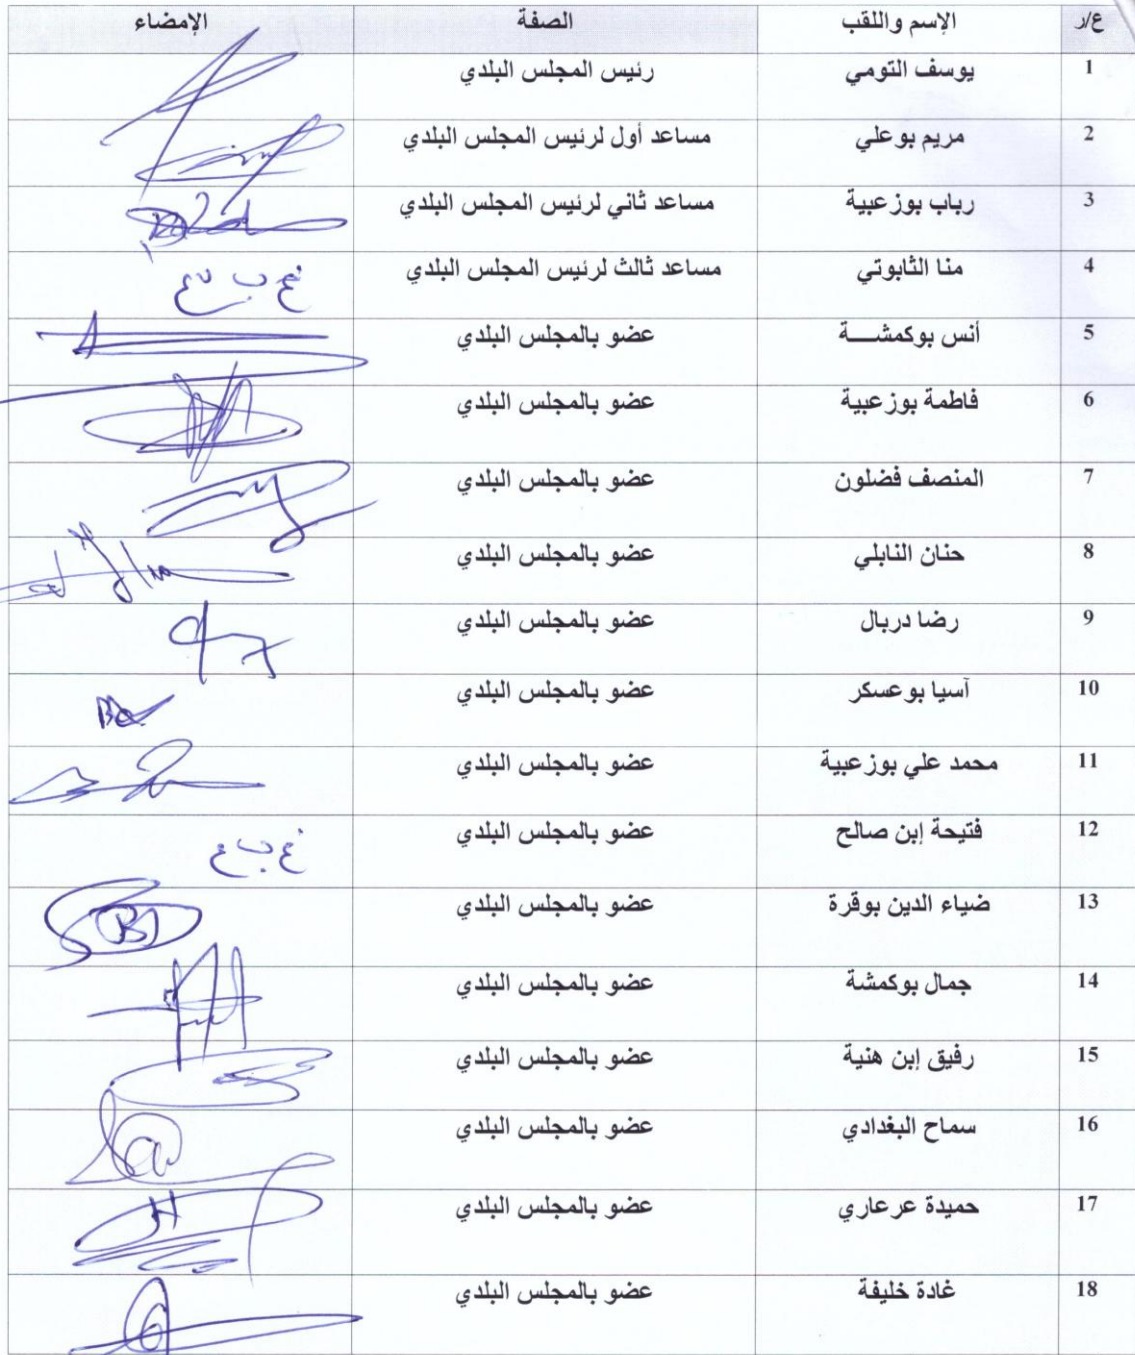 ع/ر الإسم واللقب الصفة الإمضاء
1 يوسف التومي رئيس المجلس البلدي
2 مريم بوعلي مساعد أول لرئيس المجلس البلدي
3 رباب بوزعبية مساعد ثاني لرئيس المجلس البلدي
4 منا الثابوتي مساعد ثالث لرئيس المجلس البلدي
5 أنس بوكمشـــة عضو بالمجلس البلدي
6 فاطمة بوزعبية عضو بالمجلس البلدي
7 المنصف فضلون عضو بالمجلس البلدي
8 حنان النابلي عضو بالمجلس البلدي
9 رضا دربال عضو بالمجلس البلدي
10 آسيا بوعسكر عضو بالمجلس البلدي
11 محمد علي بوزعبية عضو بالمجلس البلدي
12 فتيحة إبن صالح عضو بالمجلس البلدي غ ب ع
13 ضياء الدين بوقرة عضو بالمجلس البلدي
14 جمال بوكمشة عضو بالمجلس البلدي
15 رفيق إبن هنية عضو بالمجلس البلدي
16 سماح البغدادي عضو بالمجلس البلدي
17 حميدة عرعاري عضو بالمجلس البلدي
18 غادة خليفة عضو بالمجلس البلدي